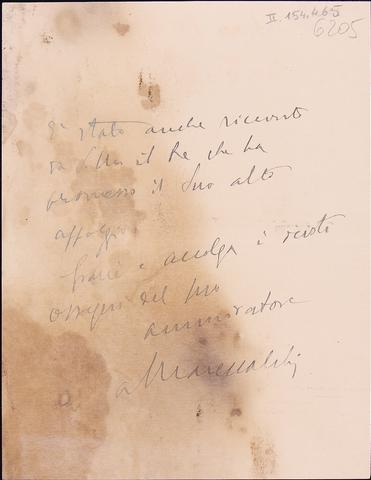 II. 154.465
6205
È stato anche ricevuto
da S.M. il Re che ha
promesso il Suo alto
appoggio.
Grazie e accolga i
ossequi del Suo
ammiratore